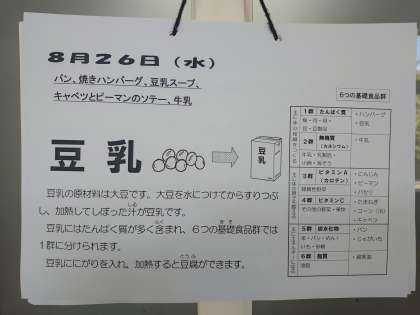 8月26日（水）
パン、焼きハンバーグ、豆乳スープ、
キャベツとピーマンのソテー、牛乳
豆乳
豆乳
豆乳の原材料は大豆です。大豆を水につけてからすりつぶ
し、加熱してしぼった汁が豆乳です。
豆乳にはたんぱく質が多く含まれ、6つの基礎食品群では
1群に分けられます。
豆乳ににがりを入れ、加熱すると豆腐ができます。
6つの基礎食品群
1群 たんぱく質
魚・肉・卵・
豆・豆製品
・ハンバーグ
・豆乳
2群 無機質
（カルシウム）
牛乳・乳製品・
小魚・海そう
・牛乳
3群 ビタミンA
（カロテン）
緑黄色野菜
・にんじん
・ピーマン
・パセリ
4群 ビタミンC
その他の野菜・果物
・たまねぎ
・コーン（乳）
・キャベツ
5群 炭水化物
米・パン・めん・
いも・砂糖
・パン
・じゃがいも
6群 脂質
油脂